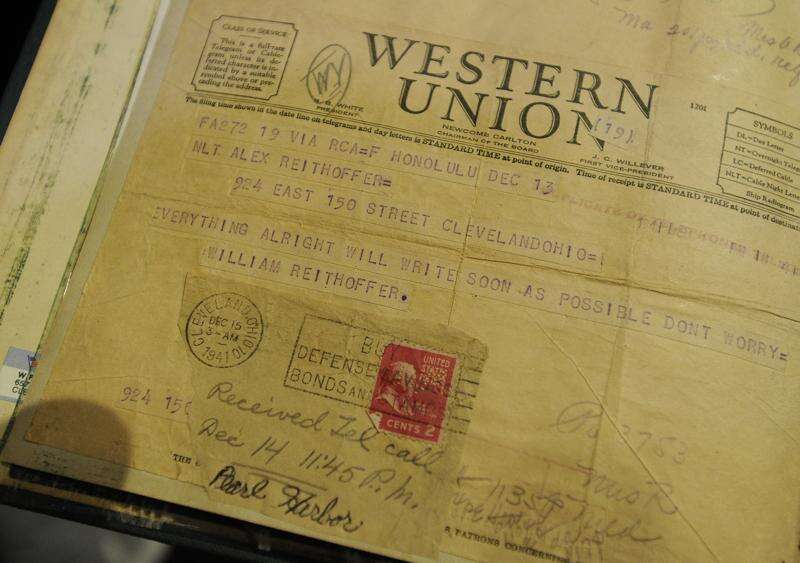 CLASS OF SERVICE
This is a full-rate
Telegram or Cable-
gram unless its de-
ferred character is in-
dicated by a suitable
symbol above or pre-
ceding the address.
WESTERN
UNION
(19).
1201
SYMBOLS
DL=Day Letter
NT=Overnight
LC=Deferred Cable
NLT=Cable Night
Ship Radiogram
R. B. WHITE
PRESIDENT
NEWCOMB CARLTON
CHAIRMAN OF THE BOARD
J. C. WILLEVER
FIRST VICE-PRESIDENT
The filing time shown in the date line on telegrams and day letters is STANDARD TIME at point of origin. Time of receipt is STANDARD TIME at point of
FA272 19 VIA RCA=F HONOLULU DEC 13
NLT ALEX REITHOFFER=
924 EAST 150 STREET CLEVELANDOHIO=
EVERYTHING ALRIGHT WILL WRITE SOON AS POSSIBLE DONT WORRY=
WILLIAM REITHOFFER.
CLEVELAND, OHIO
DEC 15
1941
DEFENSE
BONDS AN
UNITED
STATES
CENTS 2
924 150
Received Tel call
Dec 14 11:45 P.M.
Pearl Harbor
THE
PATRONS CONCERNING